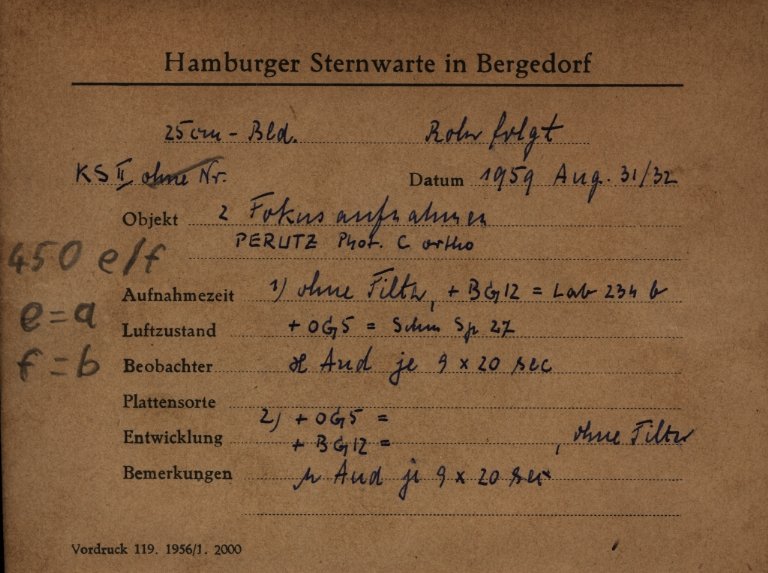 Hamburger Sternwarte in Bergedorf
25cm - Bld. Rohr folgt
KS II ohne Nr. Datum 1959 Aug. 31/32
Objekt 2 Fokusaufnahmen
PERUTZ Phot. C ortho
450 e/f
Aufnahmezeit 1) ohne Filtr, + BG12 = Lab 234 b
e=a
Luftzustand + OG5 = Schm Sp 27
f=b
Beobachter α And je 9 x 20 sec
Plattensorte
2) + OG5 =
Entwicklung + BG12 = , ohne Filtr
Bemerkungen And je 9 x 20 sec
Vordruck 119. 1956/1. 2000